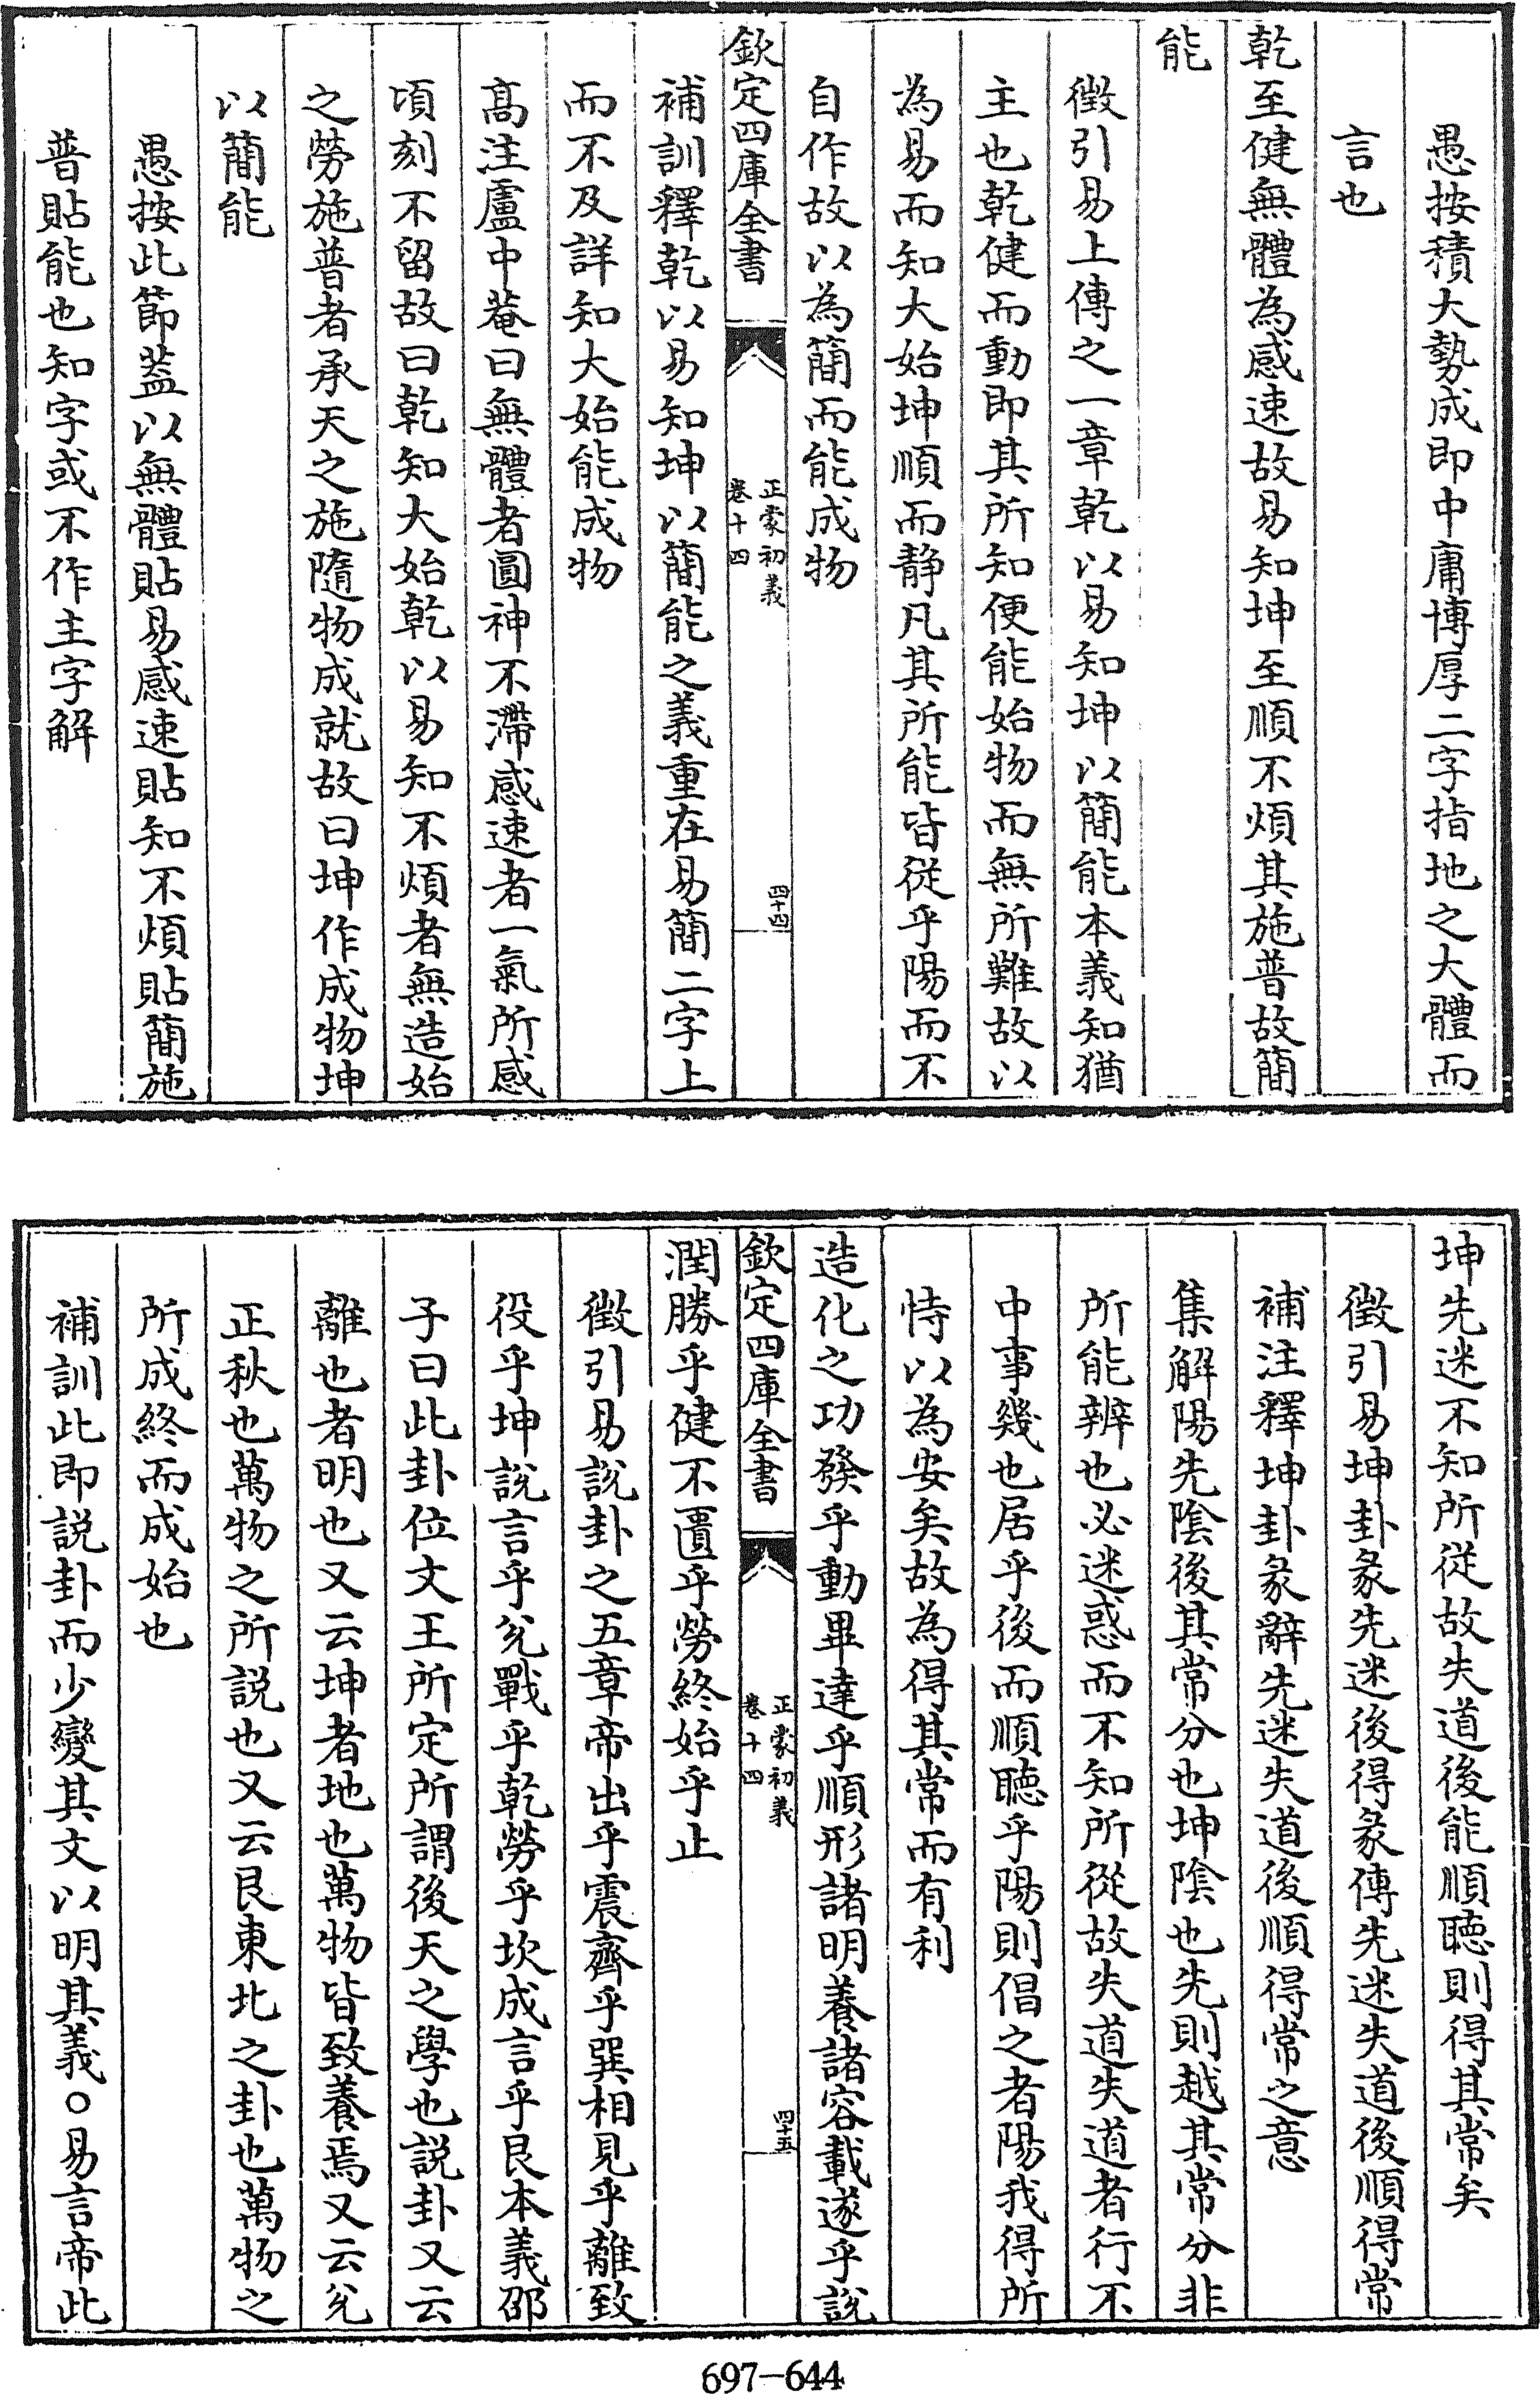 愚按積大勢成即中庸博厚二字指地之大體而
言也
乾至健無體為感速故易知坤至順不煩其施普故簡
能
徵引易上傳之一章乾以易知坤以簡能本義知猶
主也乾健而動即其所知便能始物而無所難故以
為易而知大始坤順而静凡其所能皆從乎陽而不
自作故以為簡而能成物
欽定四庫全書
正蒙初義
卷十四
四十四
補訓釋乾以易知坤以簡能之義重在易簡二字上
而不及詳知大始能成物
髙注盧中菴曰無體者圓神不滯感速者一氣所感
頃刻不留故曰乾知大始乾以易知不煩者無造始
之勞施普者承天之施隨物成就故曰坤作成物坤
以簡能
愚按此節葢以無體貼易感速貼知不煩貼簡施
普貼能也知字或不作主字解
坤先迷不知所從故失道後能順聽則得其常矣
徵引易坤卦彖先迷後得彖傳先迷失道後順得常
補注釋坤卦彖辭先迷失道後順得常之意
集解陽先陰後其常分也坤陰也先則越其常分非
所能辨也必迷惑而不知所從故失道失道者行不
中事幾也居乎後而順聽乎陽則倡之者陽我得所
恃以為安矣故為得其常而有利
造化之功發乎動畢達乎順形諸明養諸容載遂乎説
欽定四庫全書
正蒙初義
卷十四
四十五
潤勝乎健不匱乎勞終始乎止
徵引易說卦之五章帝出乎震齊乎巽相見乎離致
役乎坤說言乎兊戰乎乾勞乎坎成言乎艮本義邵
子曰此卦位文王所定所謂後天之學也説卦又云
離也者明也又云坤者地也萬物皆致養焉又云兊
正秋也萬物之所説也又云艮東北之卦也萬物之
所成終而成始也
補訓此即説卦而少變其文以明其義○易言帝此
697-644